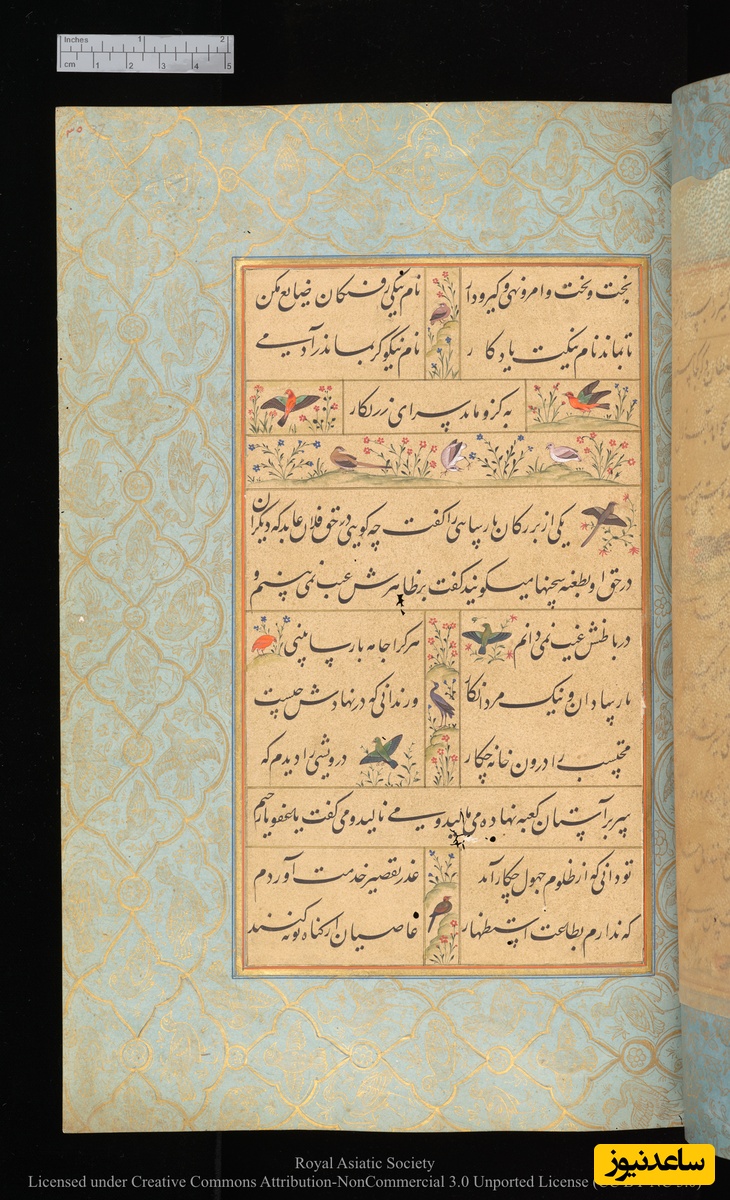 Inches 1 2
cm 1 2 3 4 5
٣٥ 37
بخت و تخت و امر و نهی و گیر و دار نام نیکی رفتگان ضایع مکن
تا بماند نام نیکت یادگار نام نیکو گر بماند ز آدمی
به کزو ماند سرای زرنگار
یکی از بزرگان پارسایی را گفت چه گویی در حق فلان عابد که دیگران
در حق او بطعنه سخنها میگویند گفت بر ظاهرش عیب نمی بینم و
در باطنش غیب نمی دانم هر کرا جامه پارسا بینی
پارسا دان و نیک مرد انگار ور ندانی که در نهادش چیست
محتسب را درون خانه چکار درویشی را دیدم که
سر بر آستان کعبه نهاده می مالید و می نالید و می گفت یا غفور یا رحیم
تو دانی که از ظلوم جهول چکار آید عذر تقصیر خدمت آوردم
که ندارم بطاعت استظهار عاصیان از گناه توبه کنند
Royal Asiatic Society
Licensed under Creative Commons Attribution-NonCommercial 3.0 Unported License
ساعدنیوز